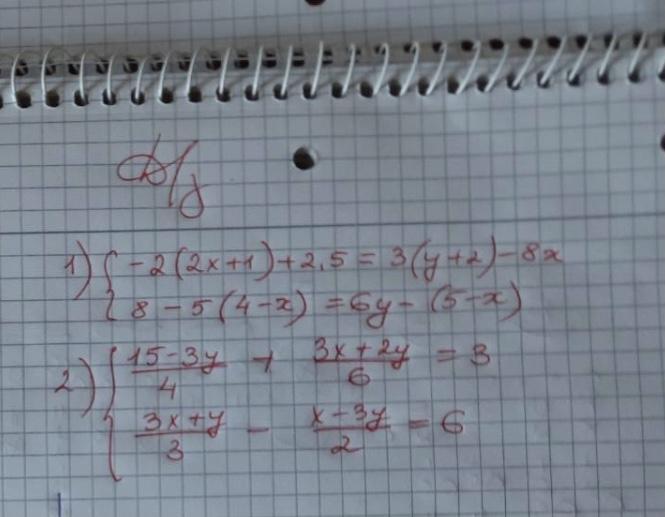 Д/з
1) { -2(2x+1)+2,5 = 3(y+2)-8x
8 - 5(4-x) = 6y - (5-x)
2) { (15-3y)/4 + (3x+2y)/6 = 3
(3x+y)/3 - (x-3y)/2 = 6